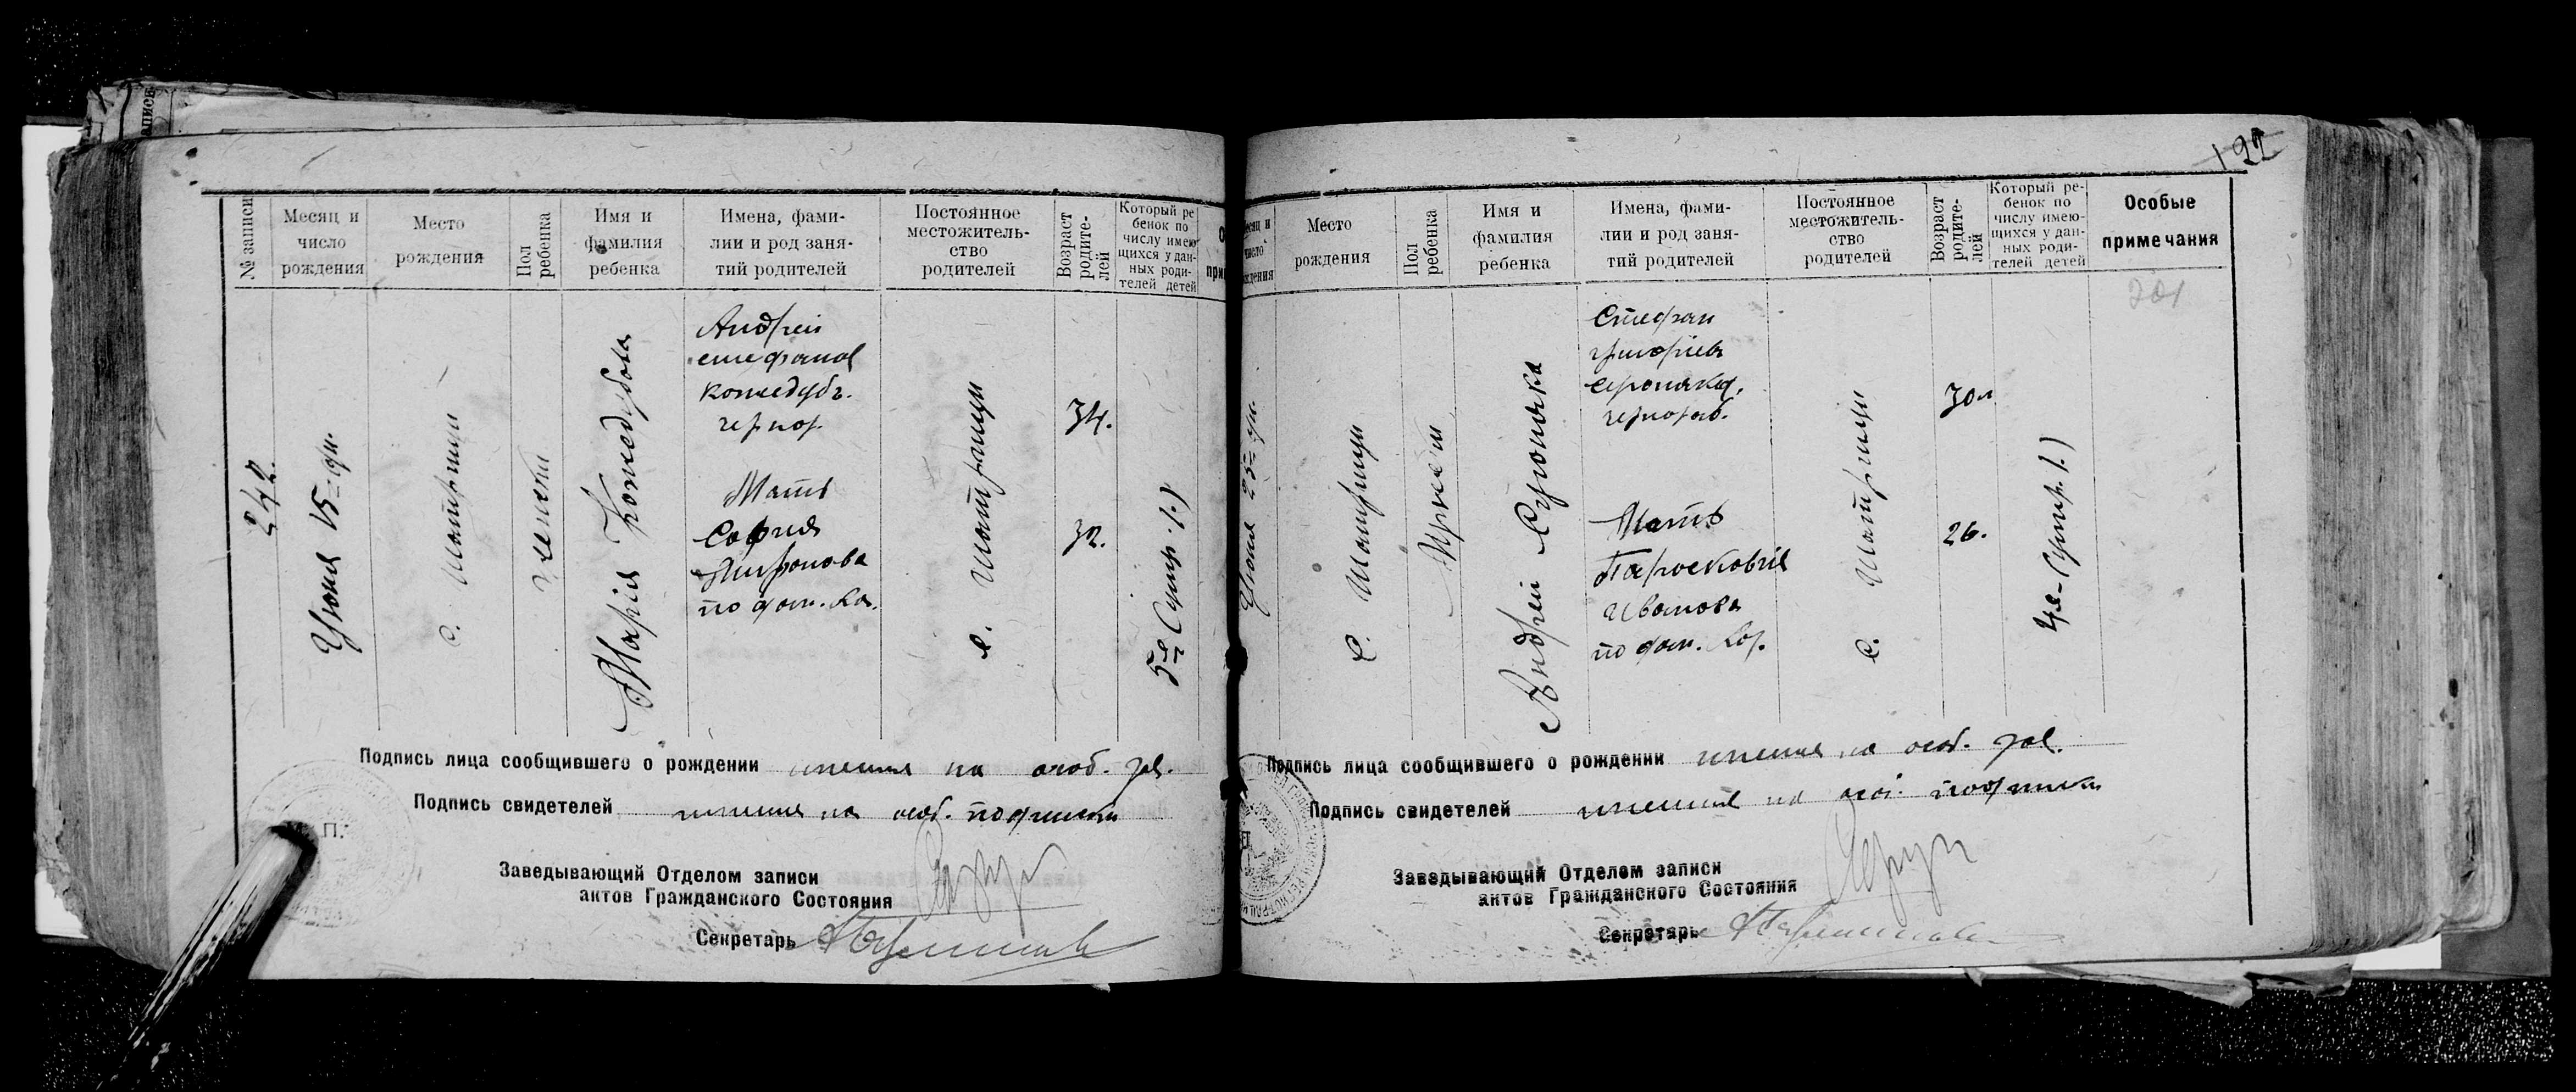 192
№ записи
Месяц и
число
рождения
Место
рождения
Пол
ребенка
Имя и
фамилия
ребенка
Имена, фами-
лии и род заня-
тий родителей
Постоянное
местожитель-
ство
родителей
Возраст
родите-
лей
Который ре
бенок по
числу имею
щихся у дан-
ных роди-
телей детей
242.
Июня 15
с.
женски
Марія Кожедубова
Андрей
стефанов
кожедубъ.
чернор.
34.
Мать
София
по фам. Ко.
32.
с.
5-й (умер. 1.)
Подпись лица сообщившего о рождении имеется на особ.
Подпись свидетелей имеется на особ. подписки
П.
Заведывающий Отделом записи
актов Гражданского Состояния
Секретарь
Место
рождения
Пол
ребенка
Имя и
фамилия
ребенка
Имена, фами-
лии и род заня-
тий родителей
Постоянное
местожитель-
ство
родителей
Возраст
родите-
лей
Который ре-
бенок по
числу имею-
щихся у дан-
ных роди-
телей детей
Особые
примечания
201
Июня 25
с.
Андрей
Стефан
чернораб.
30 л
Мать
Парасковия
Иванова
по фам.
26.
с.
4й (умер. 1.)
Подпись лица сообщившего о рождении имеется на особ.
Подпись свидетелей имеется на подписки
Заведывающий Отделом записи
актов Гражданского Состояния
Секретарь